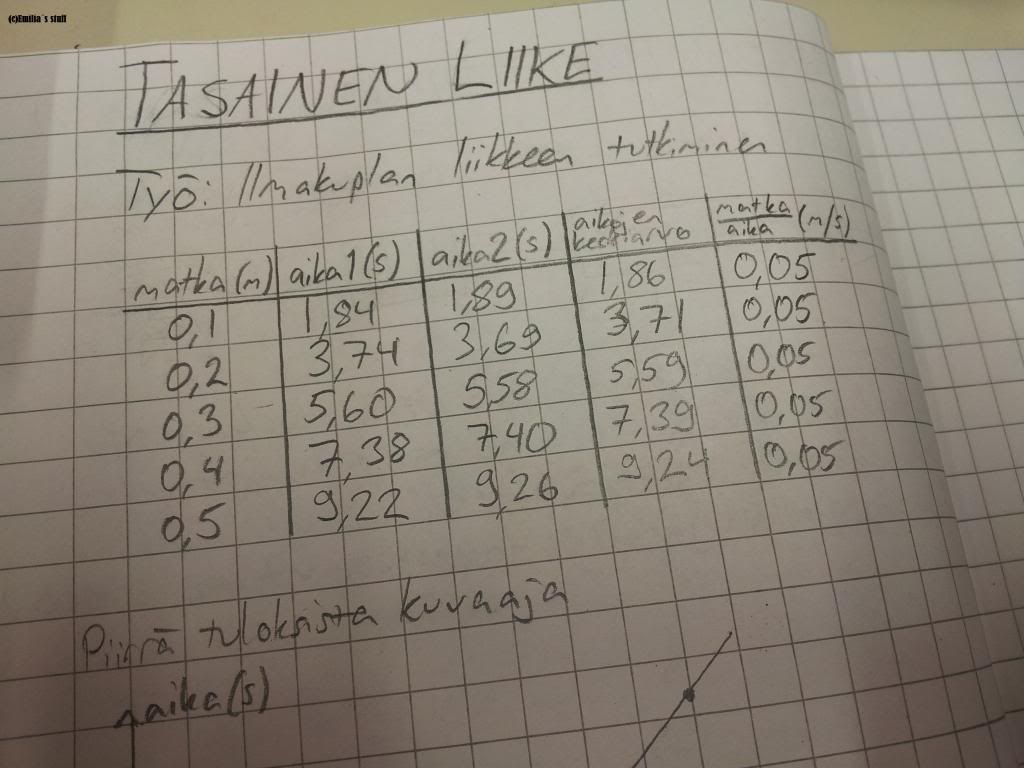 (c)Emilia`s stuff
TASAINEN LIIKE
TYÖ: Ilmakuplan liikkeen tutkiminen
matka (m) aika1(s) aika2(s) aikojen keskiarvo matka/aika (m/s)
0,1 1,84 1,89 1,86 0,05
0,2 3,74 3,69 3,71 0,05
0,3 5,60 5,58 5,59 0,05
0,4 7,38 7,40 7,39 0,05
0,5 9,22 9,26 9,24 0,05
Piirrä tuloksista kuvaaja
aika(s)